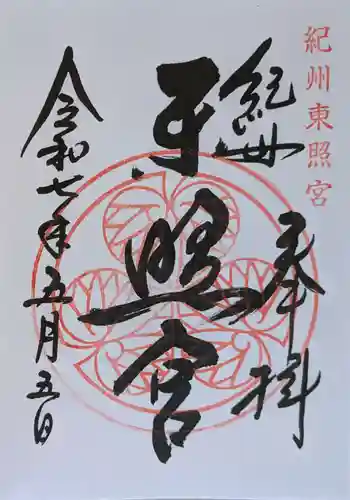 紀州東照宮
紀州
奉拝
東照宮
令和七年五月五日